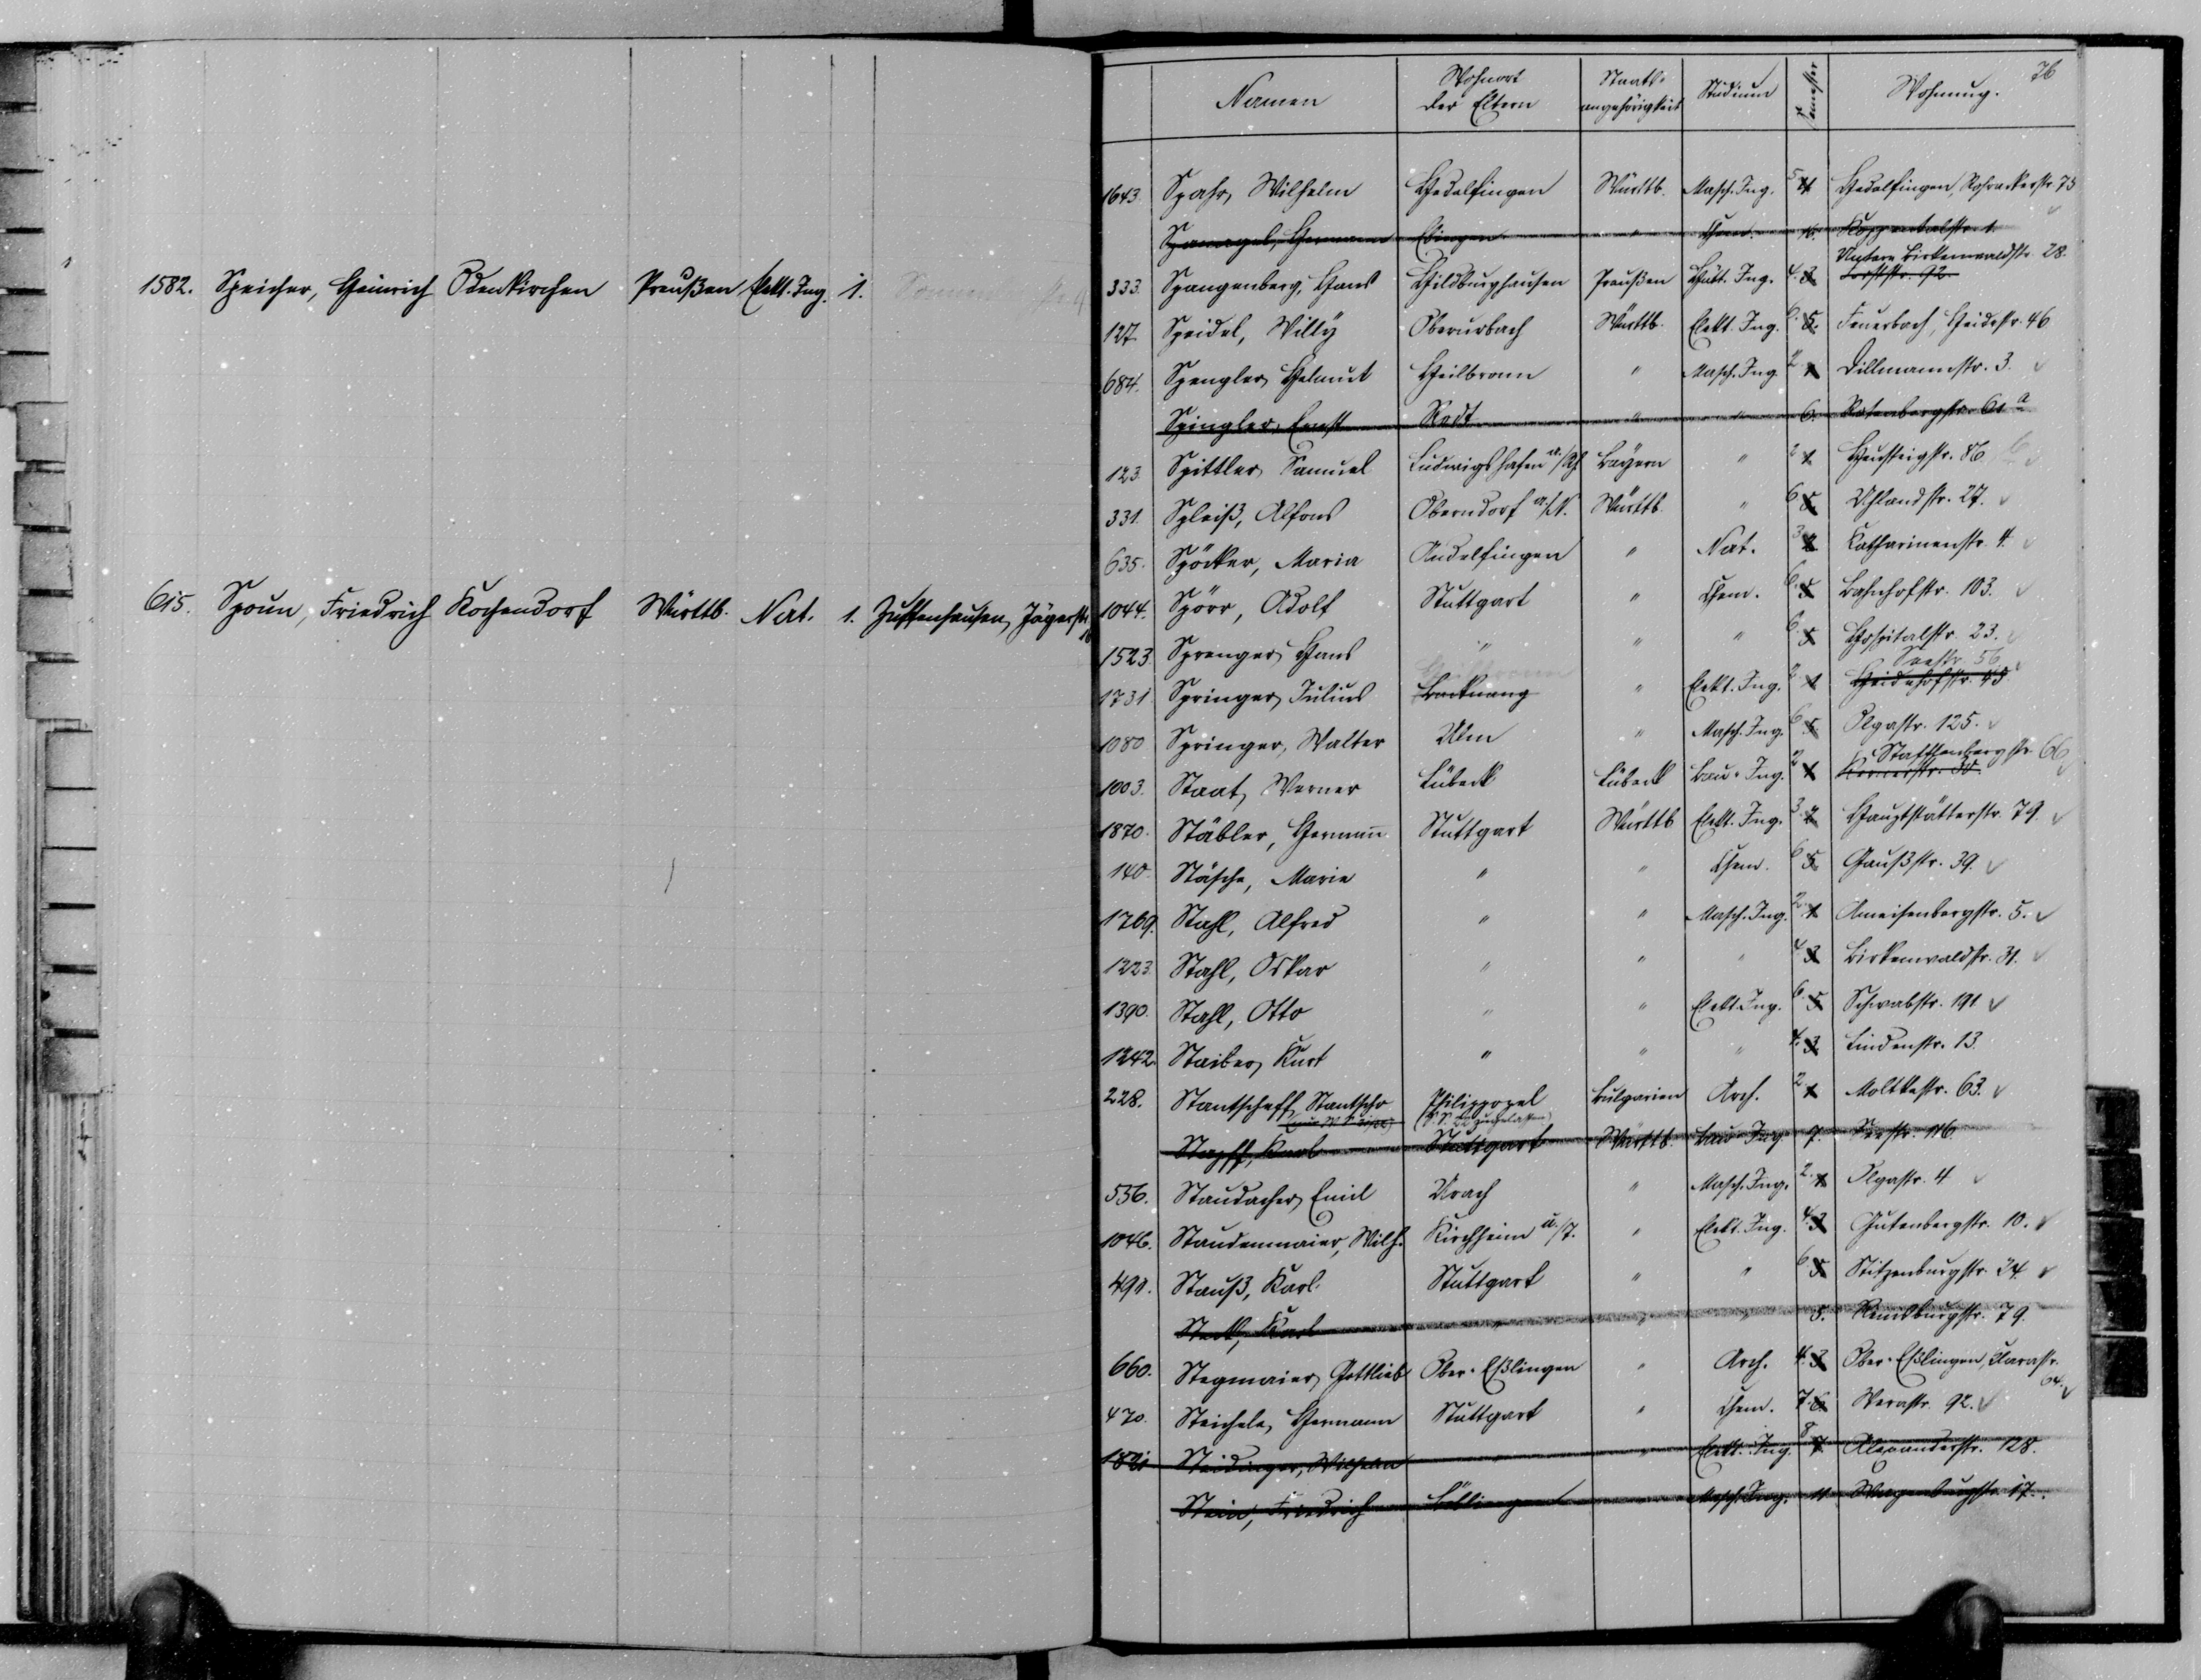 1582. Speicher, Heinrich Odenkirchen Preußen Elekt. Ing. 1.
615. Spoun, Friedrich Kochendorf Württb. Nat. 1. Zuffenhausen, Jägerstr.
76
Namen Wohnort der Eltern Staatsangehörigkeit Studium Semester Wohnung.
1643. Spahr, Wilhelm Hedelfingen Württb. Masch. Ing. 5 4 Hedelfingen, Rohrackerstr. 75
Spanagel, Hermann Ebingen " Chem. Koppentalstr. 1.
Untere Birkenwaldstr. 28.
333. Spangenberg, Hans Hildburghausen Preußen Hütt. Ing. 4. 3. Forststr. 92.
127. Speidel, Willy Oberurbach Württb. Elekt. Ing. 6. 5. Feuerbach, Heidestr. 46
684. Spengler, Helmut Heilbronn " Masch. Ing. 2 1 Dillmannstr. 3.
Spingler, Ernst Rodt " " 6. Rotenbergstr. 61 a
123. Spittler, Samuel Ludwigshafen a./Rh. Bayern " 2 1 Heusteigstr. 86
331. Spleiß, Alfons Oberndorf a./N. Württb. " 6 5. Uhlandstr. 27.
635. Spöcker, Maria Andelfingen " Nat. 3 2 Katharinenstr. 4.
1044. Spörr, Adolf Stuttgart " Chem. 6. 5 Bahnhofstr. 103.
1523. Sprenger, Hans " " " 6. 5 Hospitalstr. 23.
Seestr. 56
1731. Springer, Julius Backnang Heilbronn " Elekt. Ing. 2 1 Heidehofstr.
1080 Springer, Walter Ulm " Masch. Ing. 6. 5 Olgastr. 125.
Stafflenbergstr. 66
1003. Staat, Werner Lübeck Lübeck Bau-Ing. 2 1 Kernerstr.
1870. Stäbler, Hermann Stuttgart Württb. Elekt. Ing. 3. 2. Hauptstätterstr. 79.
140. Stäsche, Maria " " Chem. 6 5. Gaußstr. 39.
1769. Stahl, Alfred " " Masch. Ing. 2. 1 Ameisenbergstr. 5.
1223. Stahl, Oskar " " " 4 3 Birkenwaldstr. 31.
1390. Stahl, Otto " " Elekt. Ing. 6. 5 Schwabstr. 191
1242. Staiber, Kurt " " " 4. 3 Lindenstr. 13.
228. Stantscheff, Stantscho Philippopel Bulgarien Arch. 2 1 Moltkestr. 63.
Stapff, Karl Stuttgart Württb. Bau-Ing. 7. Seestr. 116.
536. Staudacher, Emil Urach " Masch. Ing. 2. 1 Olgastr. 4
1046. Staudenmaier, Wilh. Kirchheim u./T. " Elekt. Ing. 4. 3 Gutenbergstr. 10.
491. Stauß, Karl Stuttgart " " 6. 5 Stitzenburgstr. 24.
Steck, Karl " " " 5. Reinsburgstr. 79.
660. Stegmaier, Gottlieb Ober-Eßlingen " Arch. 4. 3 Ober-Eßlingen, Klarastr. 64.
470. Steichele, Hermann Stuttgart " Chem. 7. 6. Werastr. 92.
1821 Steidinger, Wilhelm " Elekt. Ing. 8 7. Alexanderstr. 128.
Stein, Friedrich Masch. Ing. Wagenburgstr. 17.